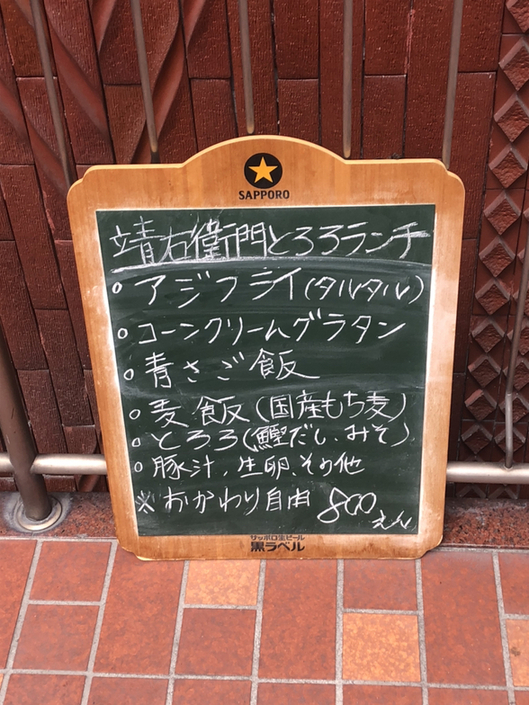 SAPPORO
靖右衛門とろろランチ
○アジフライ(タルタル)
○コーンクリームグラタン
○青さご飯
○麦飯(国産もち麦)
○とろろ(鰹だし、みそ)
○豚汁、生卵、その他
※おかわり自由 800えん
サッポロ生ビール
黒ラベル